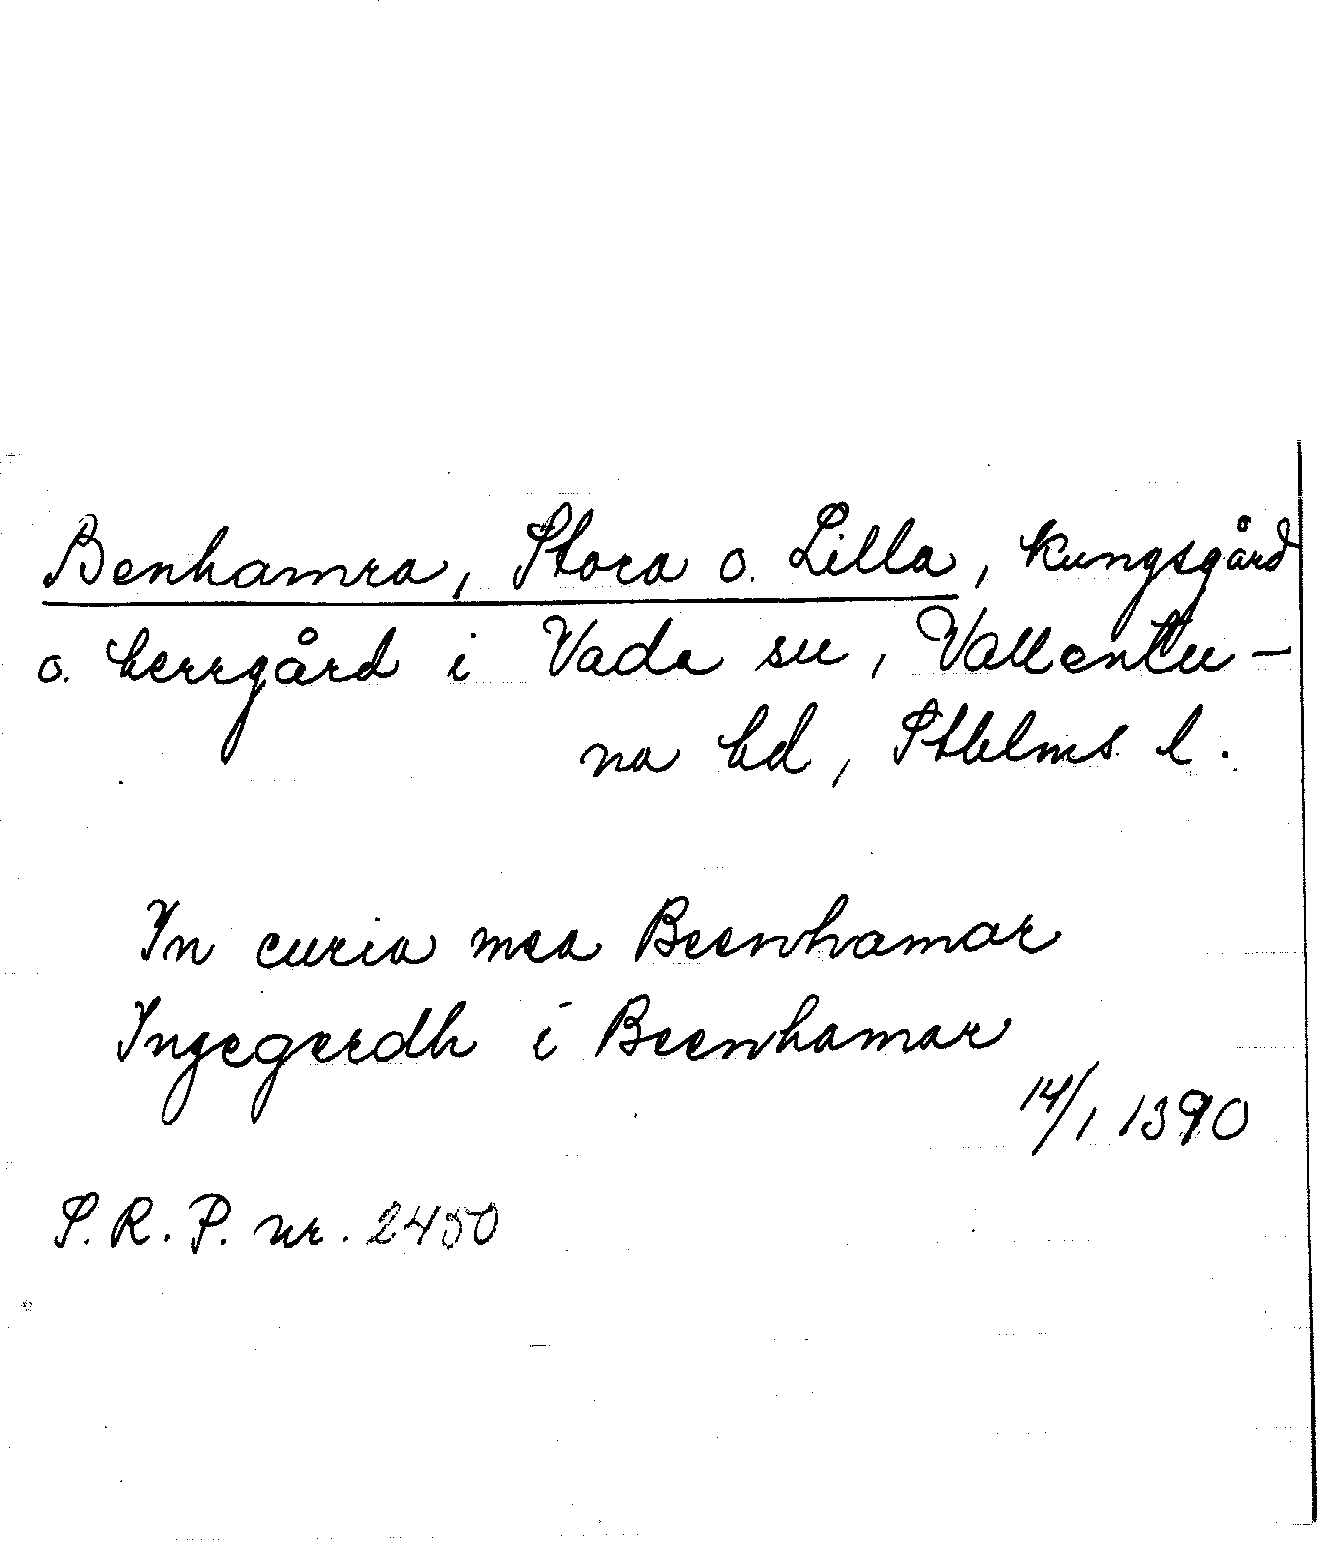 Benhamra, Stora o. Lilla, kungsgård
o. herrgård i Vada sn, Vallentu-
na hd, Sthlms l.
In curia mea Beenhamar
Ingegerdh i Beenhamar
14/1 1390
S.R.P. nr. 2450